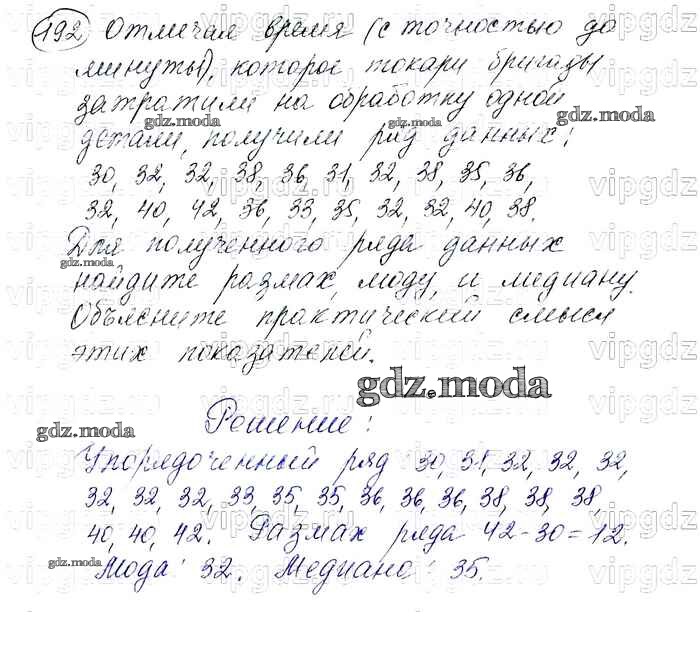 192 Отмечая время (с точностью до
минуты), которое токари бригады
затратили на обработку одной
детали, получили ряд данных:
30, 32, 32, 38, 36, 31, 32, 38, 35, 36,
32, 40, 42, 36, 33, 35, 32, 32, 40, 38.
Для полученного ряда данных
найдите размах, моду, и медиану.
Объясните практический смысл
этих показателей.
gdz.moda
Решение:
Упорядоченный ряд 30, 31, 32, 32, 32,
32, 32, 32, 33, 35, 35, 36, 36, 36, 38, 38, 38,
40, 40, 42. Размах ряда 42-30=12.
Мода: 32. Медиано: 35.